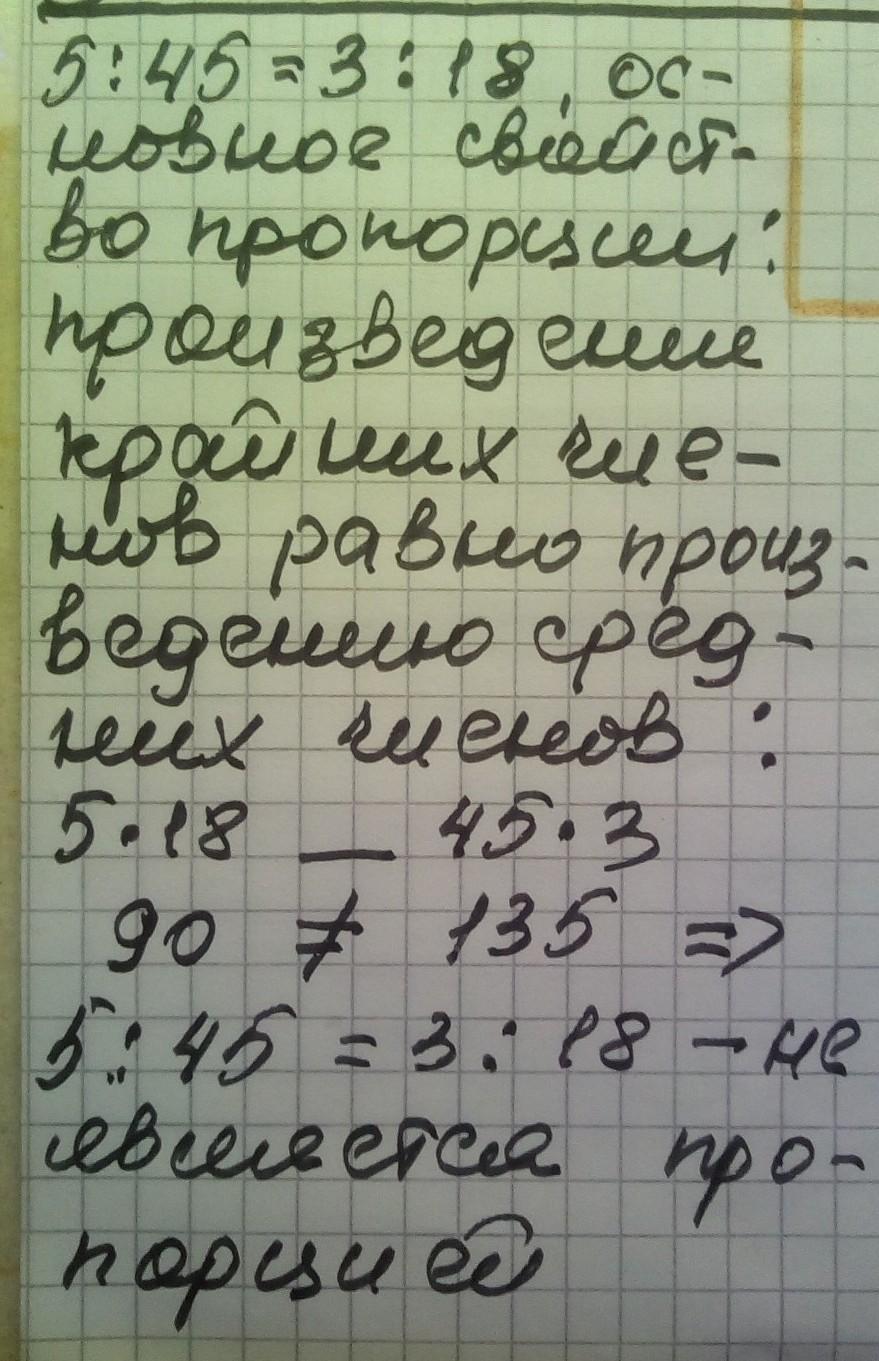 5:45=3:18, ос-
новное свойст-
во пропорции:
произведение
крайних чле-
нов равно произ-
ведению сред-
них членов:
5·18 _ 45·3
90 ≠ 135 =>
5:45=3:18 - не
является про-
порцией